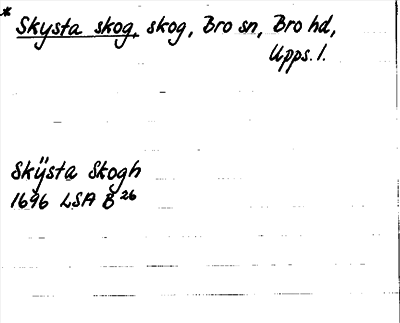 * Skysta skog, skog, Bro sn, Bro hd,
Upps. l.
Skÿsta Skogh
1696 LSA B 26